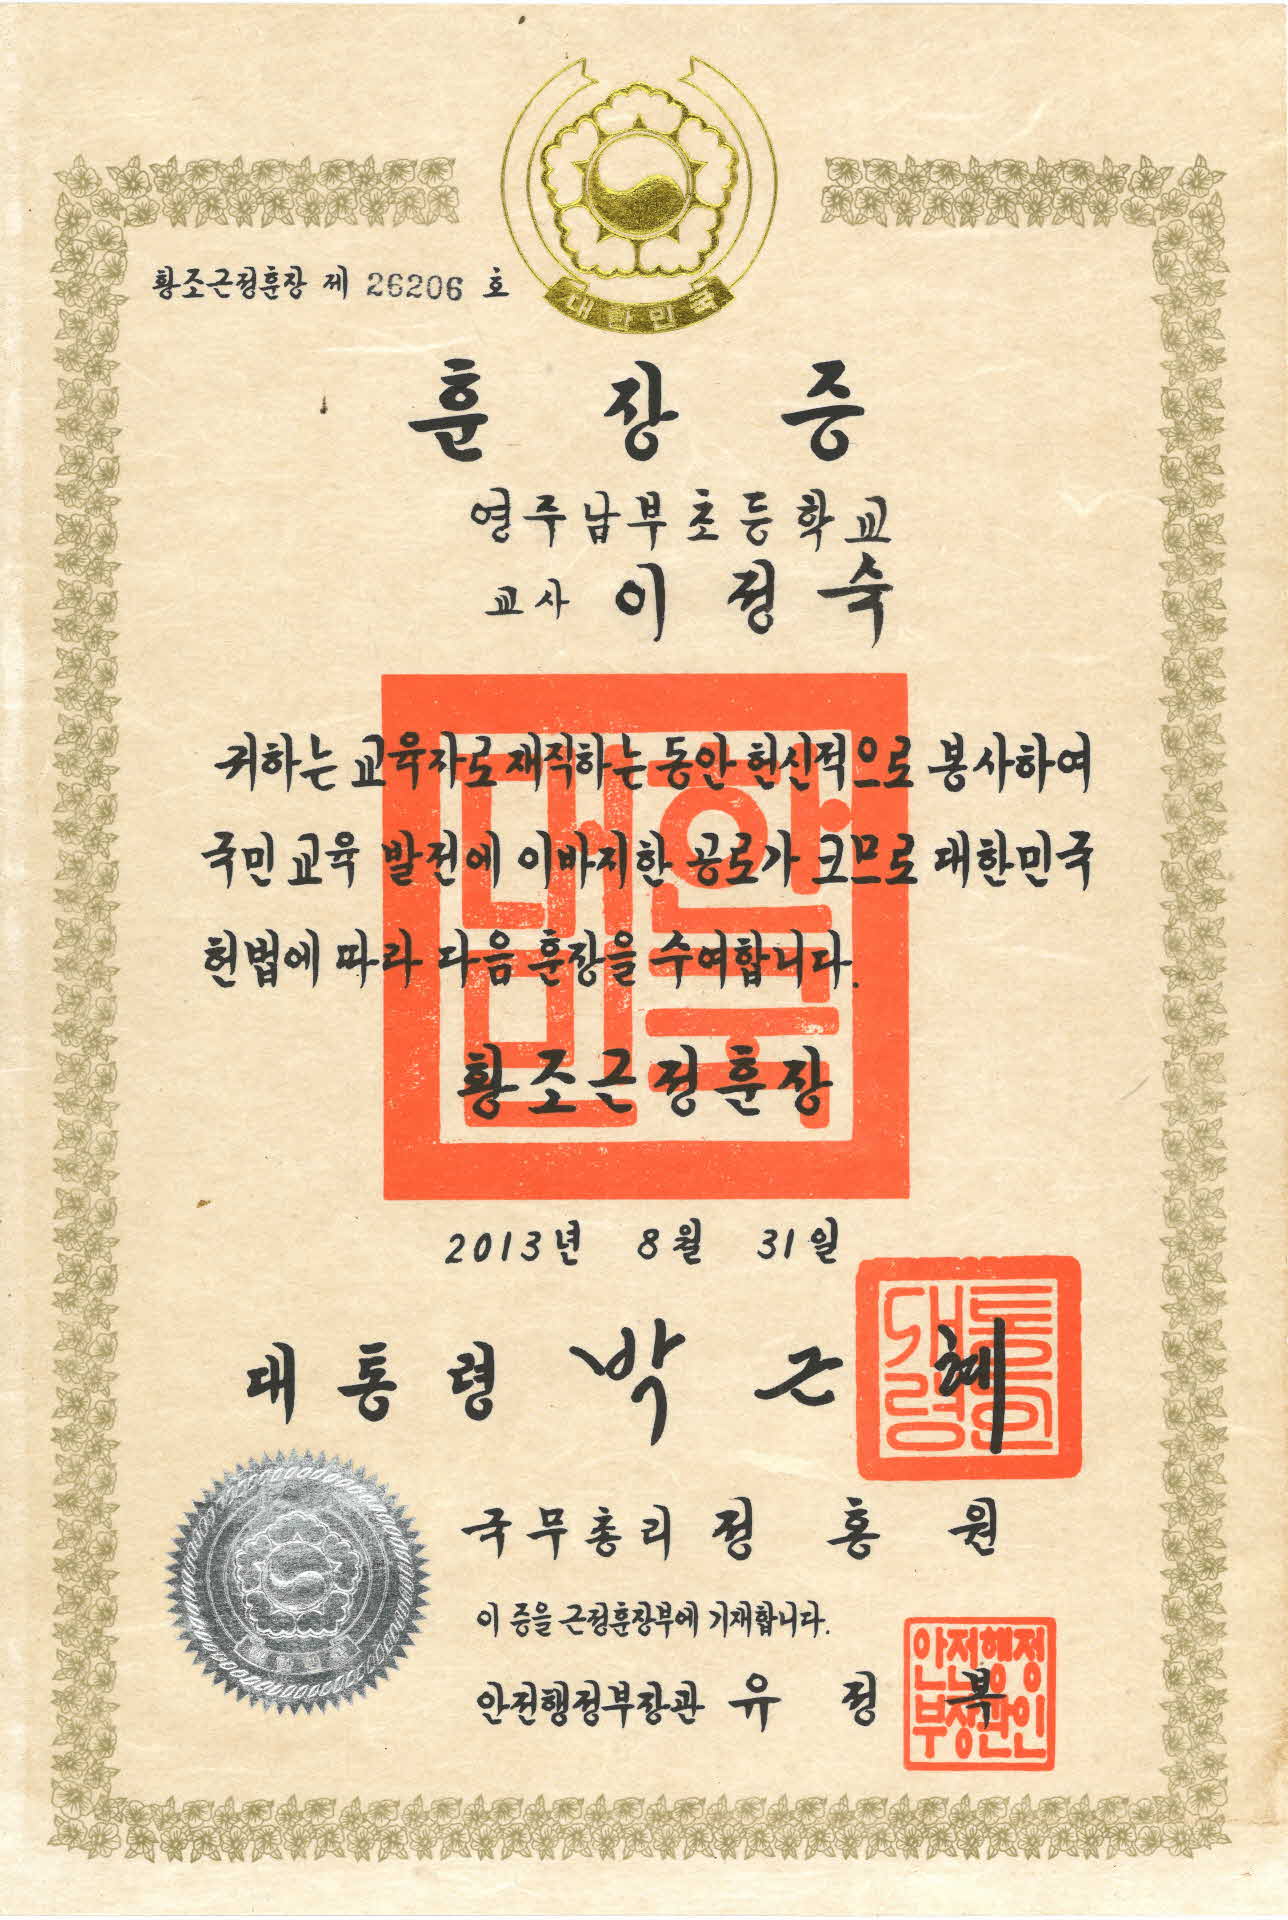 대한민국
황조근정훈장 제 26206 호
훈장증
영주남부초등학교
교사 이정숙
귀하는 교육자로 재직하는 동안 헌신적으로 봉사하여
국민 교육 발전에 이바지한 공로가 크므로 대한민국
헌법에 따라 다음 훈장을 수여합니다.
황조근정훈장
2013년 8월 31일
대통령 박근혜
국무총리 정홍원
이 증을 근정훈장부에 기재합니다.
안전행정부장관 유정복
대한민국
안전행정
부장관인